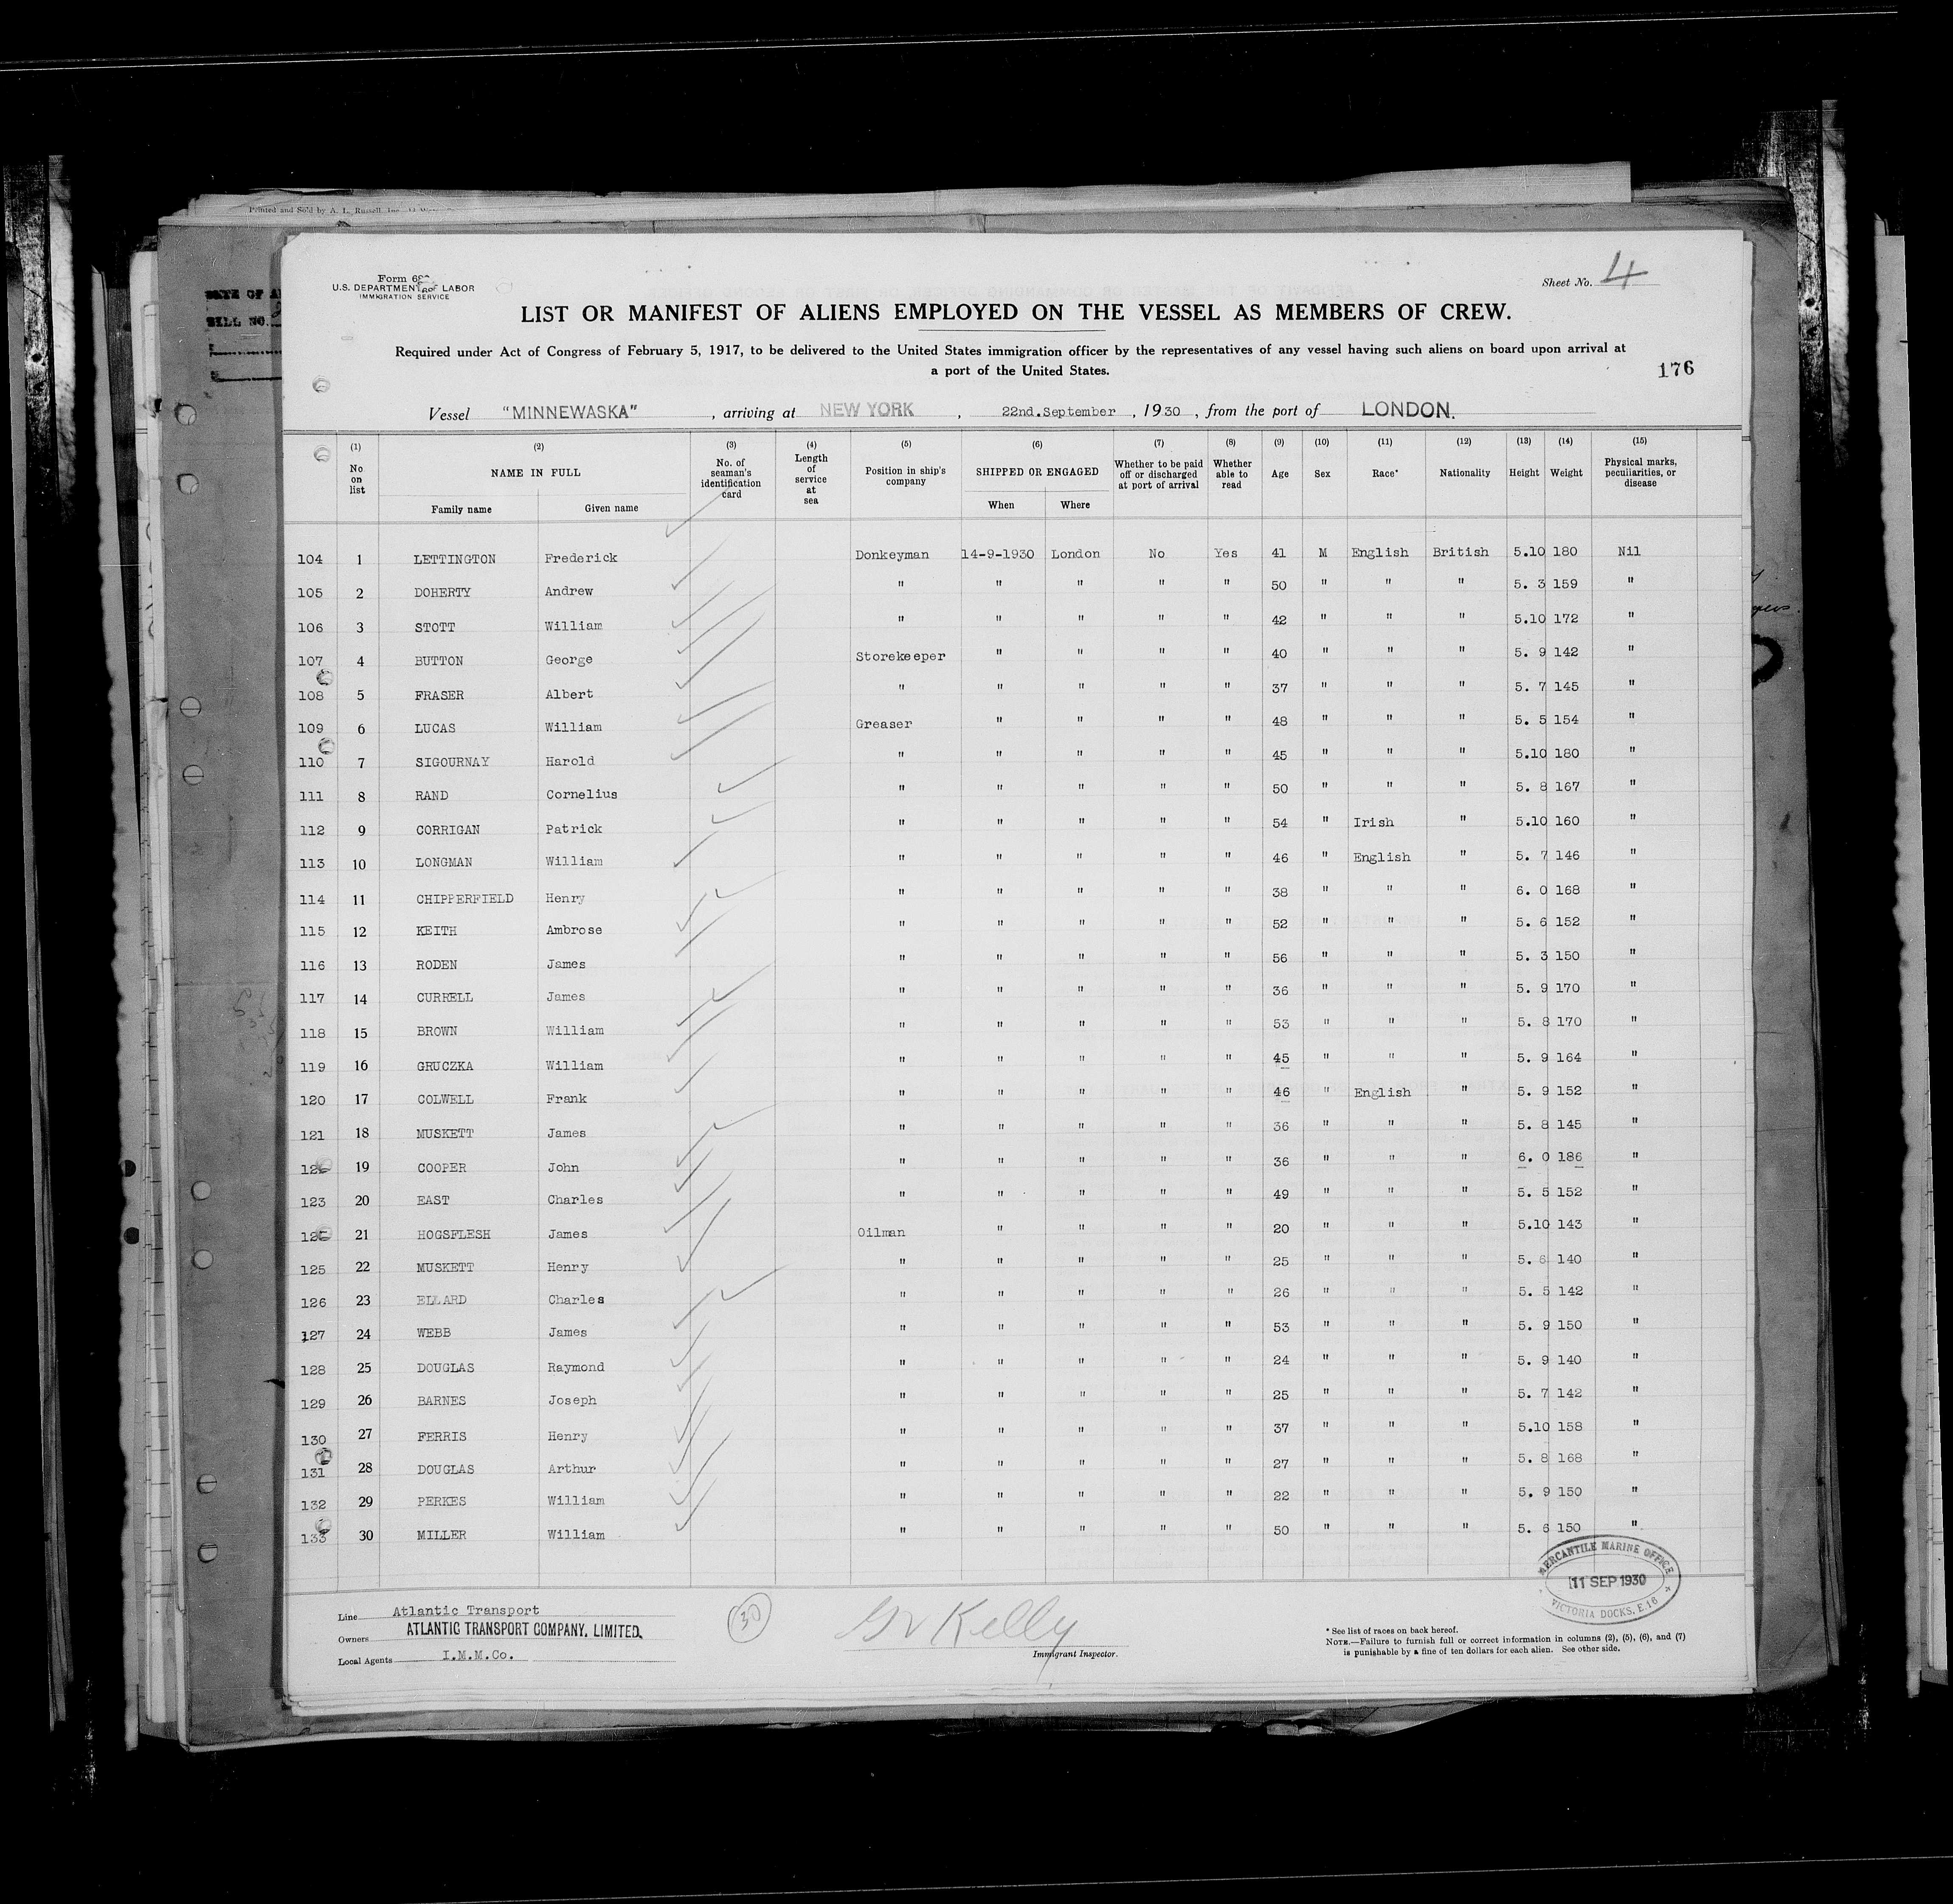 Printed and Sold by A. L. Russell, Inc.
Form 68
U.S. DEPARTMENT OF LABOR
IMMIGRATION SERVICE
Sheet No. 4
LIST OR MANIFEST OF ALIENS EMPLOYED ON THE VESSEL AS MEMBERS OF CREW.
Required under Act of Congress of February 5, 1917, to be delivered to the United States immigration officer by the representatives of any vessel having such aliens on board upon arrival at
a port of the United States.
176
Vessel "MINNEWASKA", arriving at NEW YORK, 22nd. September, 1930, from the port of LONDON.
(1) (2) (3) (4) (5) (6) (7) (8) (9) (10) (11) (12) (13) (14) (15)
No on list NAME IN FULL Family name Given name No. of seaman's identification card Length of service at sea Position in ship's company SHIPPED OR ENGAGED When Where Whether to be paid off or discharged at port of arrival Whether able to read Age Sex Race* Nationality Height Weight Physical marks, peculiarities, or disease
104 1 LETTINGTON Frederick Donkeyman 14-9-1930 London No Yes 41 M English British 5.10 180 Nil
105 2 DOHERTY Andrew " " " " " 50 " " " 5. 3 159 "
106 3 STOTT William " " " " " 42 " " " 5.10 172 "
107 4 BUTTON George Storekeeper " " " " 40 " " " 5. 9 142 "
108 5 FRASER Albert " " " " " 37 " " " 5. 7 145 "
109 6 LUCAS William Greaser " " " " 48 " " " 5. 5 154 "
110 7 SIGOURNAY Harold " " " " " 45 " " " 5.10 180 "
111 8 RAND Cornelius " " " " " 50 " " " 5. 8 167 "
112 9 CORRIGAN Patrick " " " " " 54 " Irish " 5.10 160 "
113 10 LONGMAN William " " " " " 46 " English " 5. 7 146 "
114 11 CHIPPERFIELD Henry " " " " " 38 " " " 6. 0 168 "
115 12 KEITH Ambrose " " " " " 52 " " " 5. 6 152 "
116 13 RODEN James " " " " " 56 " " " 5. 3 150 "
117 14 CURRELL James " " " " " 36 " " " 5. 9 170 "
118 15 BROWN William " " " " " 53 " " " 5. 8 170 "
119 16 GRUCZKA William " " " " " 45 " " " 5. 9 164 "
120 17 COLWELL Frank " " " " " 46 " English " 5. 9 152 "
121 18 MUSKETT James " " " " " 36 " " " 5. 8 145 "
19 COOPER John " " " " " 36 " " " 6. 0 186 "
123 20 EAST Charles " " " " " 49 " " " 5. 5 152 "
21 HOGSFLESH James Oilman " " " " 20 " " " 5.10 143 "
125 22 MUSKETT Henry " " " " " 25 " " " 5. 6 140 "
126 23 ELLARD Charles " " " " " 26 " " " 5. 5 142 "
127 24 WEBB James " " " " " 53 " " " 5. 9 150 "
128 25 DOUGLAS Raymond " " " " " 24 " " " 5. 9 140 "
129 26 BARNES Joseph " " " " " 25 " " " 5. 7 142 "
130 27 FERRIS Henry " " " " " 37 " " " 5.10 158 "
131 28 DOUGLAS Arthur " " " " " 27 " " " 5. 8 168 "
132 29 PERKES William " " " " " 22 " " " 5. 9 150 "
133 30 MILLER William " " " " " 50 " " " 5. 6 150 "
MERCANTILE MARINE OFFICE
11 SEP 1930
VICTORIA DOCKS, E.16
Line Atlantic Transport
Owners ATLANTIC TRANSPORT COMPANY, LIMITED.
Local Agents I.M.M.Co.
30
Kelly
Immigrant Inspector.
* See list of races on back hereof.
NOTE.—Failure to furnish full or correct information in columns (2), (5), (6), and (7)
is punishable by a fine of ten dollars for each alien. See other side.